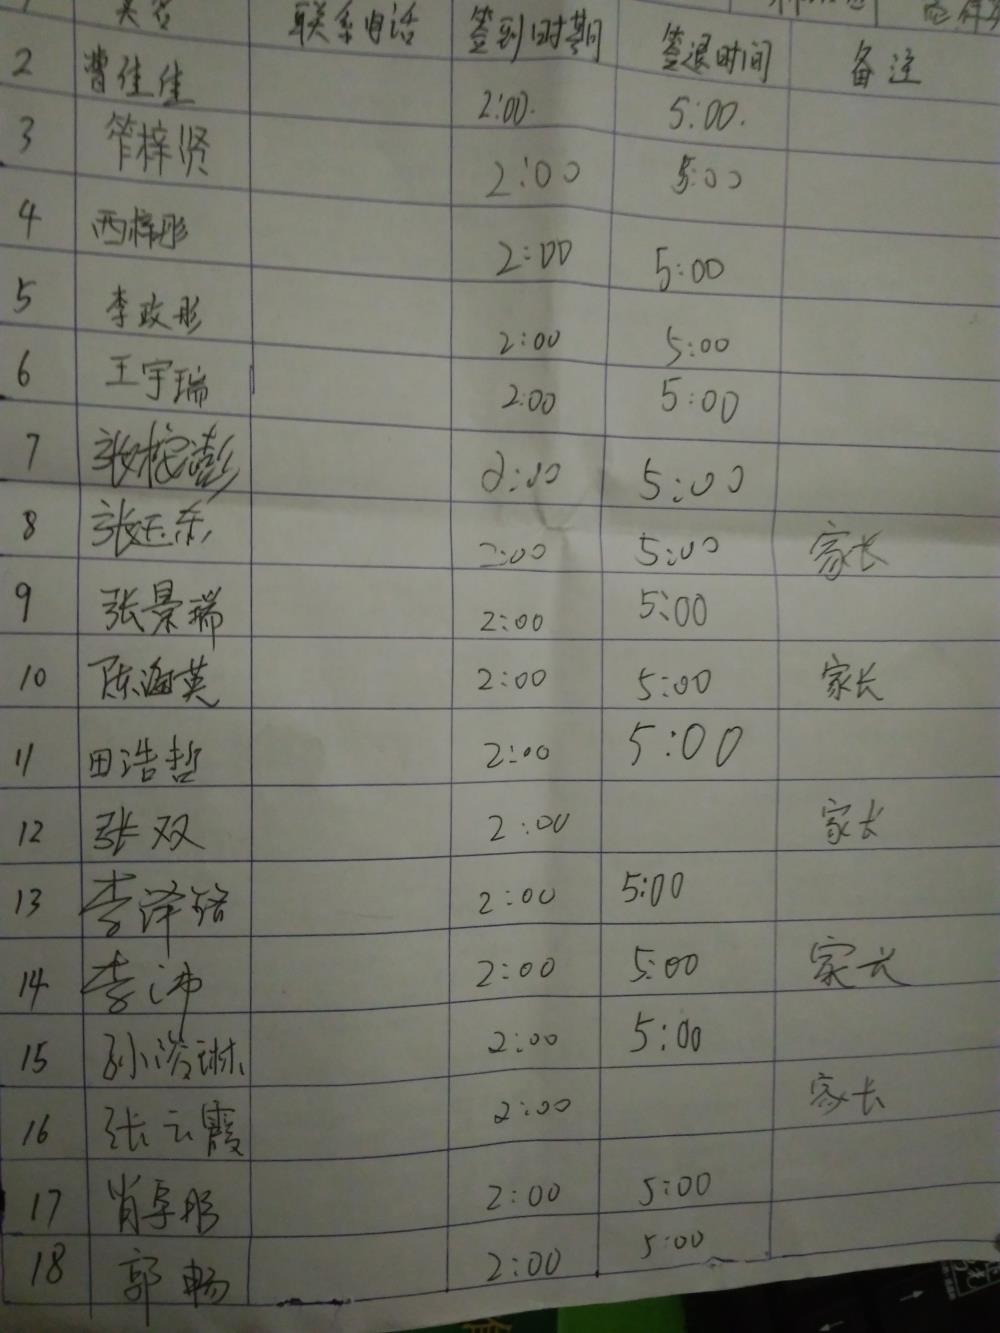 联系电话 签到时期 签退时间 备注
2 曹佳佳 2:00. 5:00.
3 笮梓贤 2:00 5:00
4 西梓彤 2:00 5:00
5 李政彤 2:00 5:00
6 王宇瑞 2:00 5:00
7 2:00 5:00
8 2:00 5:00 家长
9 张景瑞 2:00 5:00
10 陈海英 2:00 5:00 家长
11 田浩哲 2:00 5:00
12 张双 2:00 家长
13 李泽铭 2:00 5:00
14 李沛 2:00 5:00 家长
15 孙浚琳 2:00 5:00
16 张云霞 2:00 家长
17 肖卓彤 2:00 5:00
18 郭畅 2:00 5:00